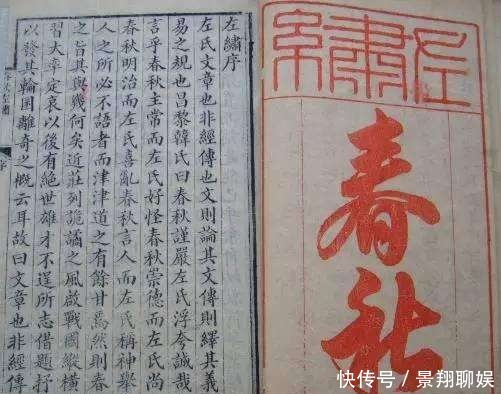 左繡
春秋
左繡序
左氏文章也非經傳也文則論其文傳則繹其義
易之規也昌黎韓氏曰春秋謹嚴左氏浮夸誠哉
言乎春秋主常而左氏好怪春秋崇德而左氏尚
春秋明治而左氏喜亂春秋言人而左氏稱神舉
人之所必不語者而津津道之有餘甘焉然則春
之旨其與幾何矣近莊列詭譎之風啟戰國縱橫
習大率定哀以後有絕世雄才不逞所志借題抒
以發其輪囷離奇之概云耳故曰文章也非經傳
快传号／景翔聊娱